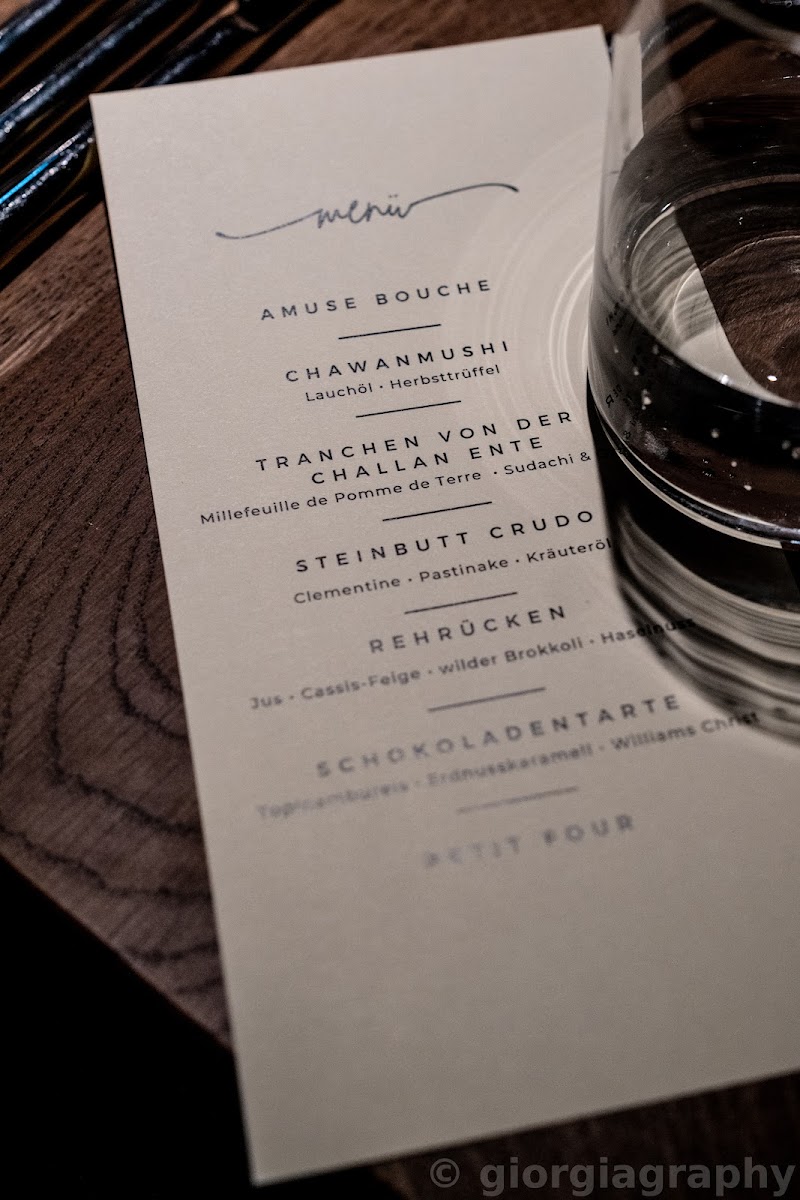 menü
AMUSE BOUCHE
CHAWANMUSHI
Lauchöl • Herbsttrüffel
TRANCHEN VON DER
CHALLAN ENTE
Millefeuille de Pomme de Terre • Sudachi &
STEINBUTT CRUDO
Clementine • Pastinake • Kräuteröl
REHRÜCKEN
Jus • Cassis-Feige • wilder Brokkoli • Haselnuss
SCHOKOLADENTARTE
Topinambureis • Erdnusskaramell • Williams Christ
PETIT FOUR
© giorgiagraphy